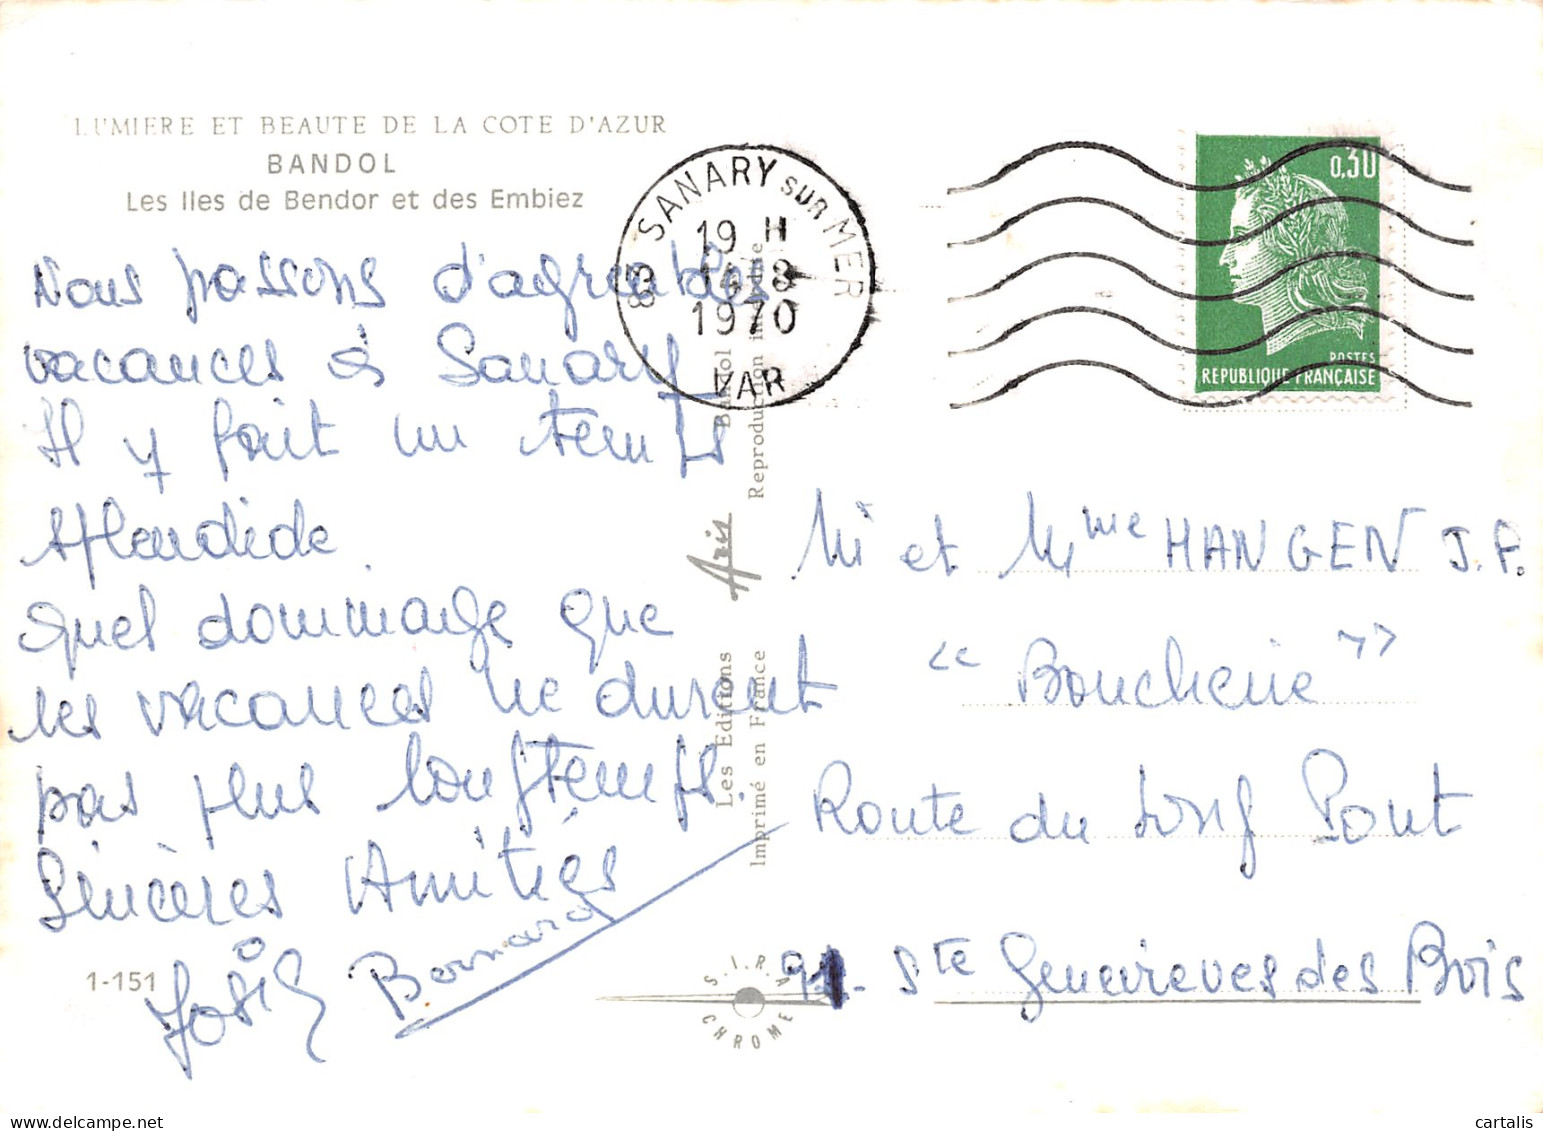 LUMIERE ET BEAUTE DE LA COTE D'AZUR
BANDOL
Les Iles de Bendor et des Embiez
Nous passons d'agreables
vacances à Sanary
Il y fait un temps
splendide
Quel dommage que
les vacances ne durent
pas plus longtemps.
Sincères Amitiés
Josie
Bernard
1-151
83 SANARY SUR MER
19 H
14-8
1970
VAR
0,30
POSTES
REPUBLIQUE FRANÇAISE
Les Editions Aris Bandol
Imprimé en France Reproduction interdite
S.I.R.A.
CHROME
M et Mme HANGEN J.P.
"Boucherie"
Route du Long Pont
91. Ste Genevieves des Bois
cartalis